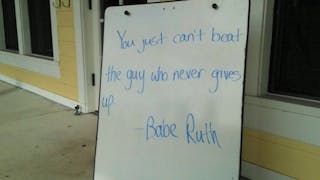 You just can't beat
the guy who never gives
up.
-Babe Ruth